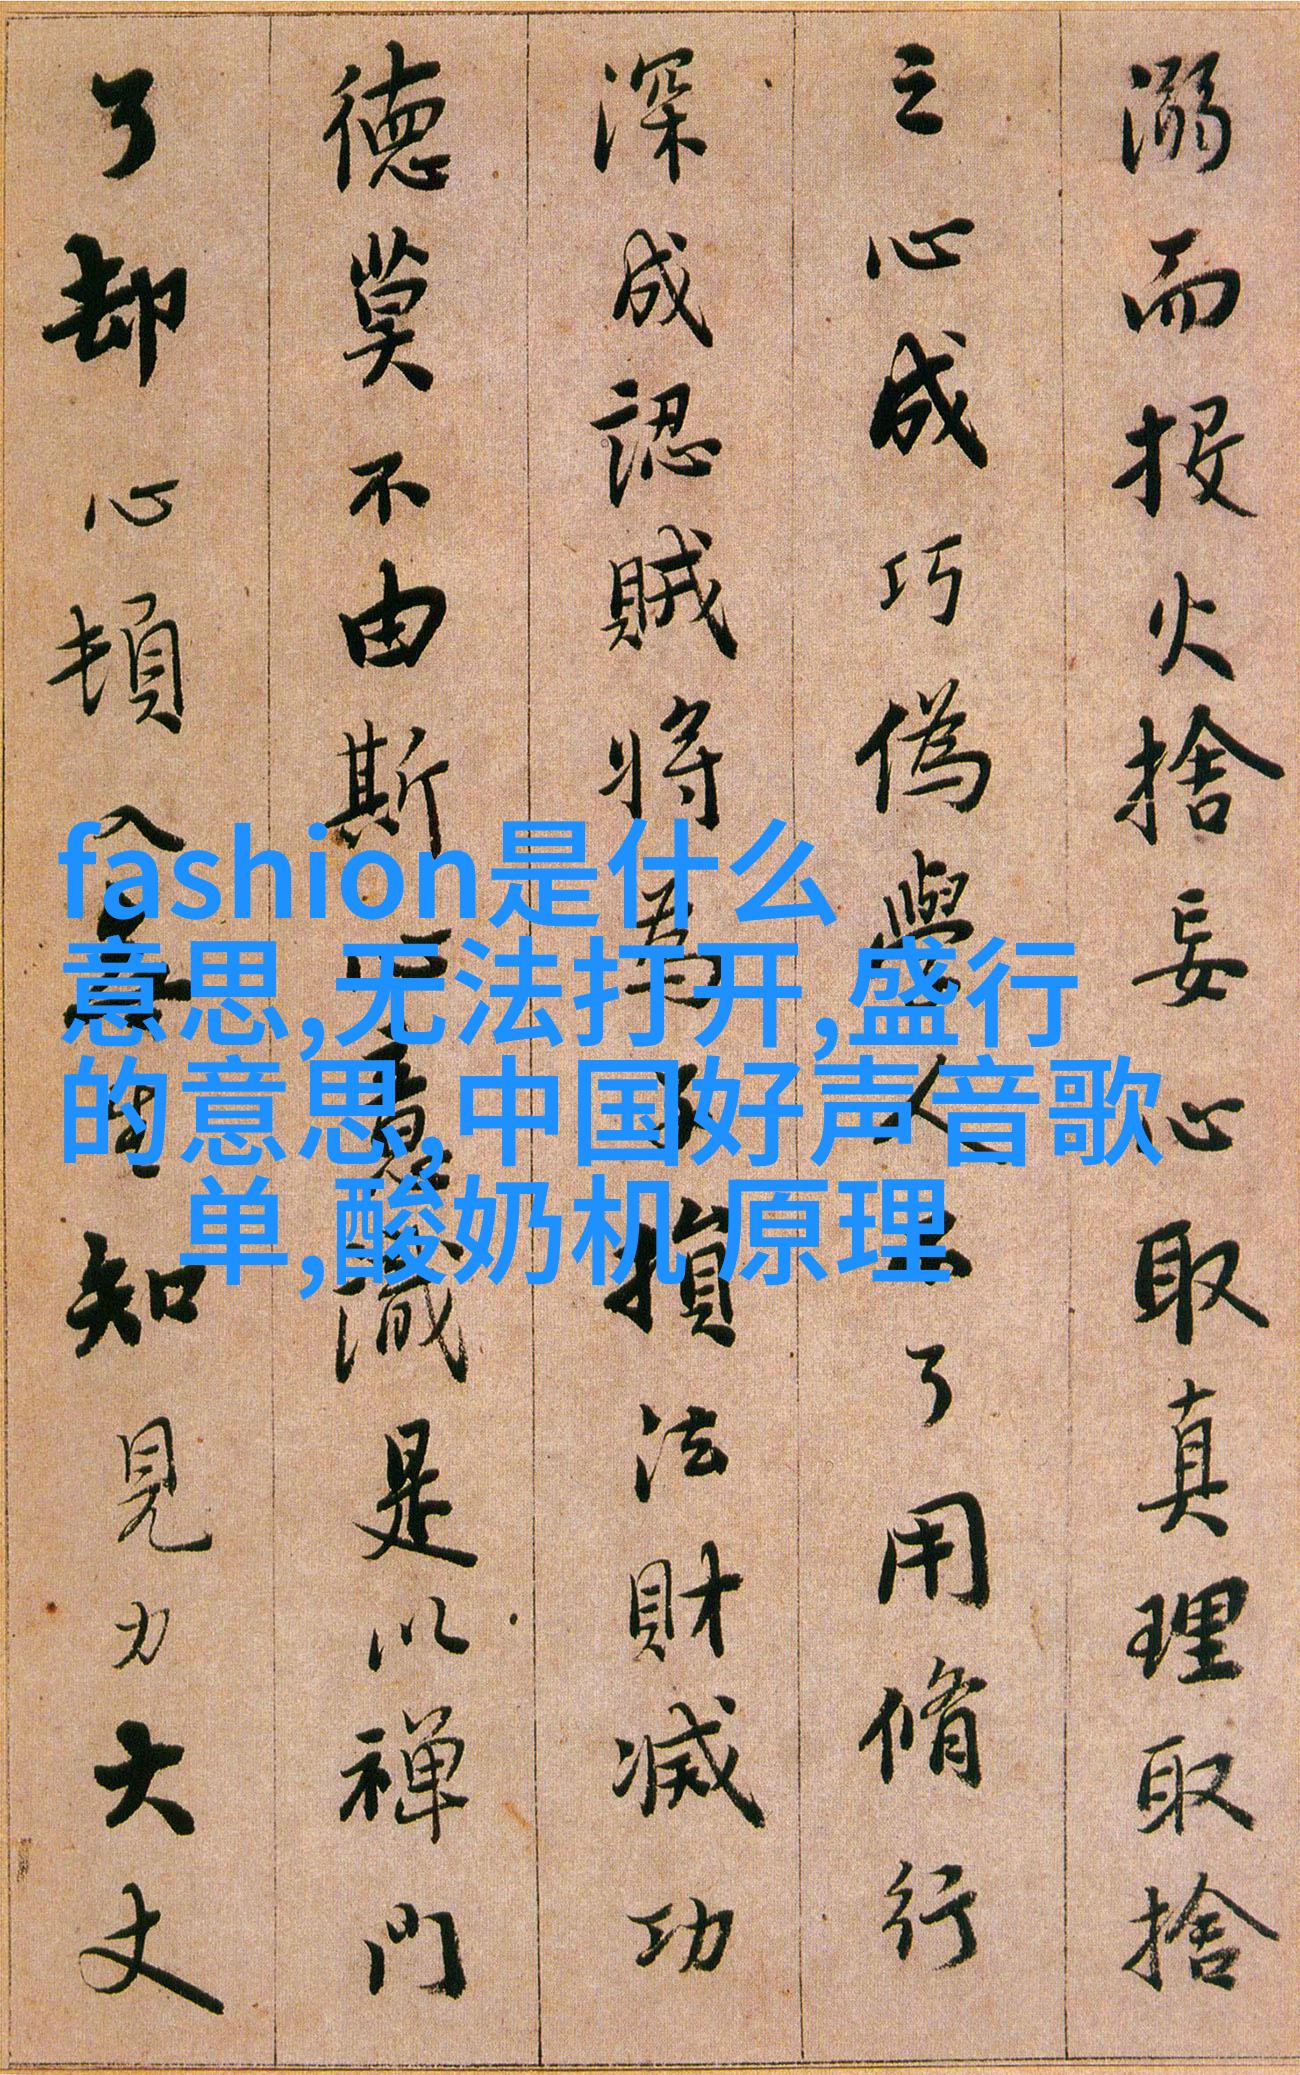 溺而投火捨妄心取真理取捨
之心成巧偽學人不了用脩行
深成認賊將為子損法財滅功
德莫不由斯心意識是以禪門
了却心頓入無生知見力大丈
fashion是什么
意思,无法打开,盛行
的意思,中国好声音歌
单,酸奶机 原理